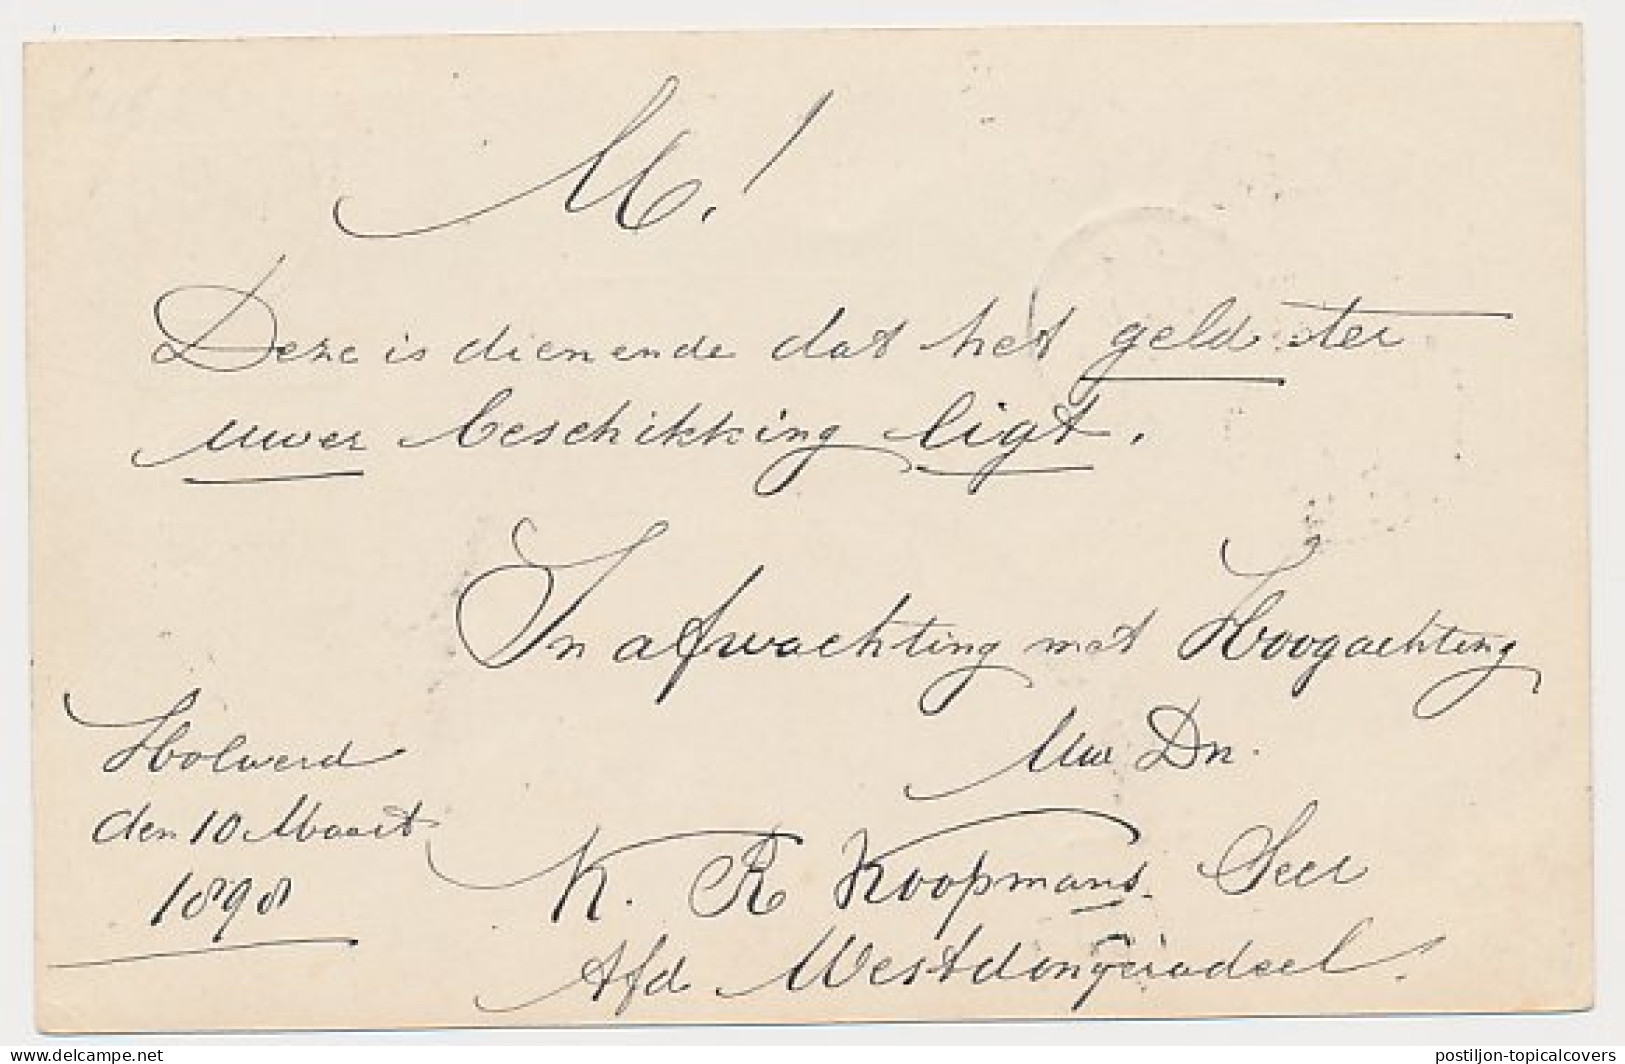 M.!
Deze is dienende dat het geld ter
uwer beschikking ligt.
In afwachting met Hoogachting
Uw Dn.
Holwerd
den 10 Maart
1898
K. R Koopmans. Secr
Afd Westdongeradeel.
delcampe.net
postiljon-topicalcovers